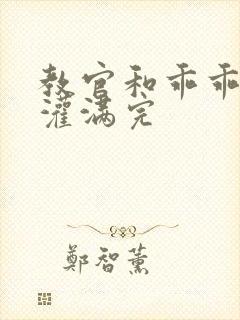 教官和乖乖
灌满完
鄭智薰